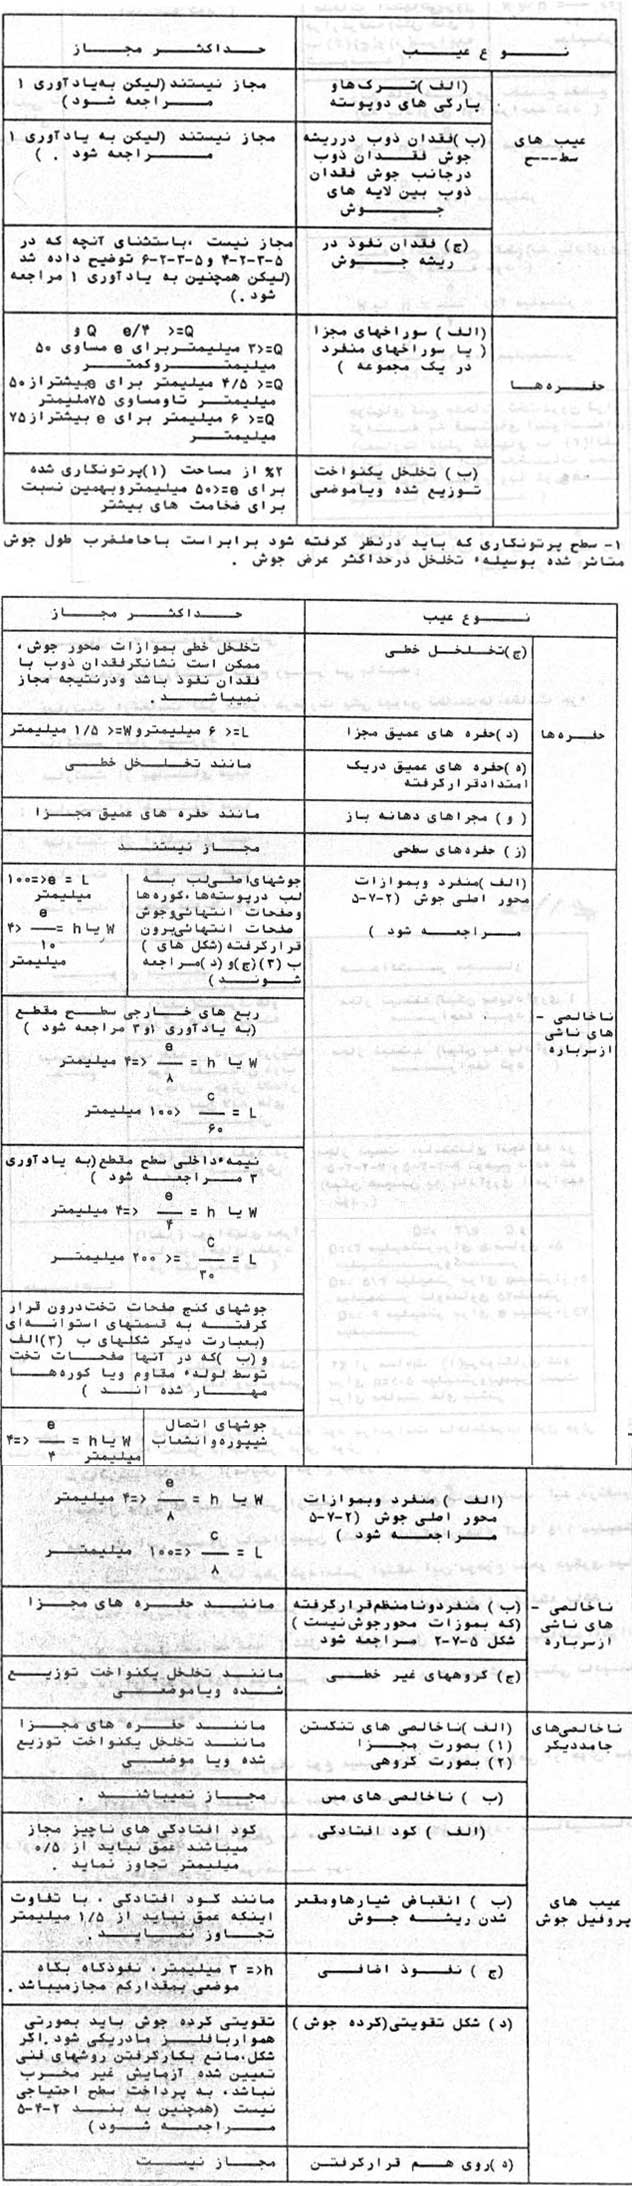 نوع عیب
حداکثر مجاز
عیب های
سطح
(الف) ترک‌ها و
پارگی های دوپوسته
مجاز نیستند (لیکن به یادآوری ۱
مراجعه شود)
(ب) فقدان ذوب در ریشه
جوش فقدان ذوب
درجانب جوش فقدان
ذوب بین لایه های
جوش
مجاز نیستند (لیکن به یادآوری ۱
مراجعه شود . )
(ج) فقدان نفوذ در
ریشه جوش
مجاز نیست ، باستثنای آنچه که در
۴-۲-۳-۵ و ۶-۲-۳-۵ توضیح داده شد
(لیکن همچنین به یادآوری ۱ مراجعه
شود .)
حفره ها
(الف) سوراخهای مجزا
( یا سوراخهای منفرد
در یک مجموعه )
Q <= e/۴ و
Q <=۳ میلیمتر برای e مساوی ۵۰
میلیمتر و کمتر
Q <= ۴/۵ میلیمتر برای e بیشتر از ۵۰
میلیمتر تا و مساوی ۷۵ ملیمتر
Q <= ۶ میلیمتر برای e بیشتر از ۷۵
میلیمتر
(ب) تخلخل یکنواخت
توزیع شده و یا موضعی
۲% از مساحت (۱) پرتونگاری شده
برای e <=۵۰ میلیمتر و بهمین نسبت
برای ضخامت های بیشتر
۱- سطح پرتونکاری که باید درنظر گرفته شود برابر است باحاصلضرب طول جوش
متاثر شده بوسیلهء تخلخل درحداکثر عرض جوش .
نوع عیب
حداکثر مجاز
حفره ها
(ج) تخلخل خطی
تخلخل خطی بموازات محور جوش ،
ممکن است نشانگر فقدان ذوب با
فقدان نفوذ باشد و درنتیجه مجاز
نمیباشد .
(د) حفره های عمیق مجزا
L <= ۶ میلیمتر و W <= ۱/۵ میلیمتر
(ه) حفره های عمیق دریک
امتداد قرار گرفته
مانند تخلخل خطی
( و ) مجراهای دهانه باز
مانند حفره های عمیق مجزا
(ز ) حفره های سطحی
مجاز نیستند
ناخالصی -
های ناشی
از سرباره
(الف) منفرد و بموازات
محور اصلی جوش (۲-۷-۵
مراجعه شود )
جوشهای اصلی لب به
لب درپوسته‌ها، کوره‌ها
و صفحات انتهائی و جوش
صفحات انتهائی برون
قرارگرفته (شکل های )
ب (۳) (ج) و (د) مراجعه
شوند)
L = e <=۱۰۰
میلیمتر
W یا h = e/۱۰ <۴
میلیمتر
ربع های خارجی سطح مقطع
(به یادآوری ۱و۳ مراجعه شود )
W یا h = e/۸ <=۴ میلیمتر
L = c/۶۰ <۱۰۰ میلیمتر
نیمهء داخلی سطح مقطع (به یادآوری
۳ مراجعه شود )
W یا h = e/۴ <=۴ میلیمتر
L = C/۳۰ <= ۲۰۰ میلیمتر
جوشهای کنج صفحات تخت درون قرار
گرفته به قسمتهای استوانه‌ای
(بعبارت دیگر شکلهای ب (۳) الف
و (ب) که در آنها صفحات تخت
توسط لولهء مقاوم و یا کوره ها
مهار شده اند )
جوشهای اتصال
شیپوره و انشعاب
W یا h = e/۴ <=۴
میلیمتر
ناخالصی -
های ناشی
از سرباره
(الف ) منفرد و بموازات
محور اصلی جوش (۲-۷-۵
مراجعه شود )
W یا h = e/۸ <=۴ میلیمتر
L = c/۸ <=۱۰۰ میلیمتر
(ب ) منفرد و نامنظم قرار گرفته
(که بموزات محور جوش نیست )
شکل ۵-۷-۲ مراجعه شود
مانند حفره های مجزا
(ج) گروههای غیر خطی
مانند تخلخل یکنواخت توزیع
شده و یا موضعی
ناخالصی‌های
جامد دیکر
(الف) ناخالصی های تنکستن
(۱) بصورت مجزا
(۲) بصورت گروهی
مانند حفره های مجزا
مانند تخلخل یکنواخت توزیع
شده ویا موضعی
(ب ) ناخالصی های مس
مجاز نمیباشند .
عیب های
پروفیل جوش
(الف ) کود افتادکی
کود افتادگی های ناچیز مجاز
میباشند عمق نباید از ۰/۵
میلیمتر تجاوز نماید .
(ب ) انقباض شیارها و مقعر
شدن ریشه جوش
مانند کود افتادکی ، با تفاوت
اینکه عمق نباید از ۱/۵ میلیمتر
تجاوز نماید .
(ج ) نفوذ اضافی
h <= ۳ میلیمتر، نفوذگاه بکاه
موضعی بمقدار کم مجاز میباشد .
(د ) شکل تقویتی (گرده جوش )
تقویتی گرده جوش باید بصورتی
هموار با فلز مادر یکی شود . اگر
شکل، مانع بکارگرفتن روشهای فنی
تعیین شده آزمایش غیر مخرب
نباشد، به پرداخت سطح احتیاجی
نیست (همچنین به بند ۲-۴-۵
مراجعه شود)
(ه) روی هم قرارگرفتن
مجاز نیست